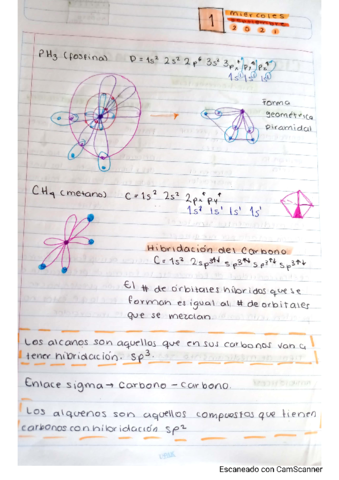 1
miércoles
2021
PH3 (fosfina) P = 1s² 2s² 2p⁶ 3s² 3px 3py 3pz
1s¹ 1s¹ 1s¹
Forma
geométrica
piramidal
CH4 (metano) C = 1s² 2s² 2px 2py
1s¹ 1s¹ 1s¹ 1s¹
Hibridación del Carbono
C = 1s² 2sp³ sp³ sp³ sp³
El # de orbitales hibridos que se
forman es igual al # de orbitales
que se mezclan.
Los alcanos son aquellos que en sus carbonos van a
tener hibridación. sp³
Enlace sigma → Carbono – Carbono.
Los alquenos son aquellos compuestos que tienen
carbonos con hibridación sp²
Escaneado con CamScanner